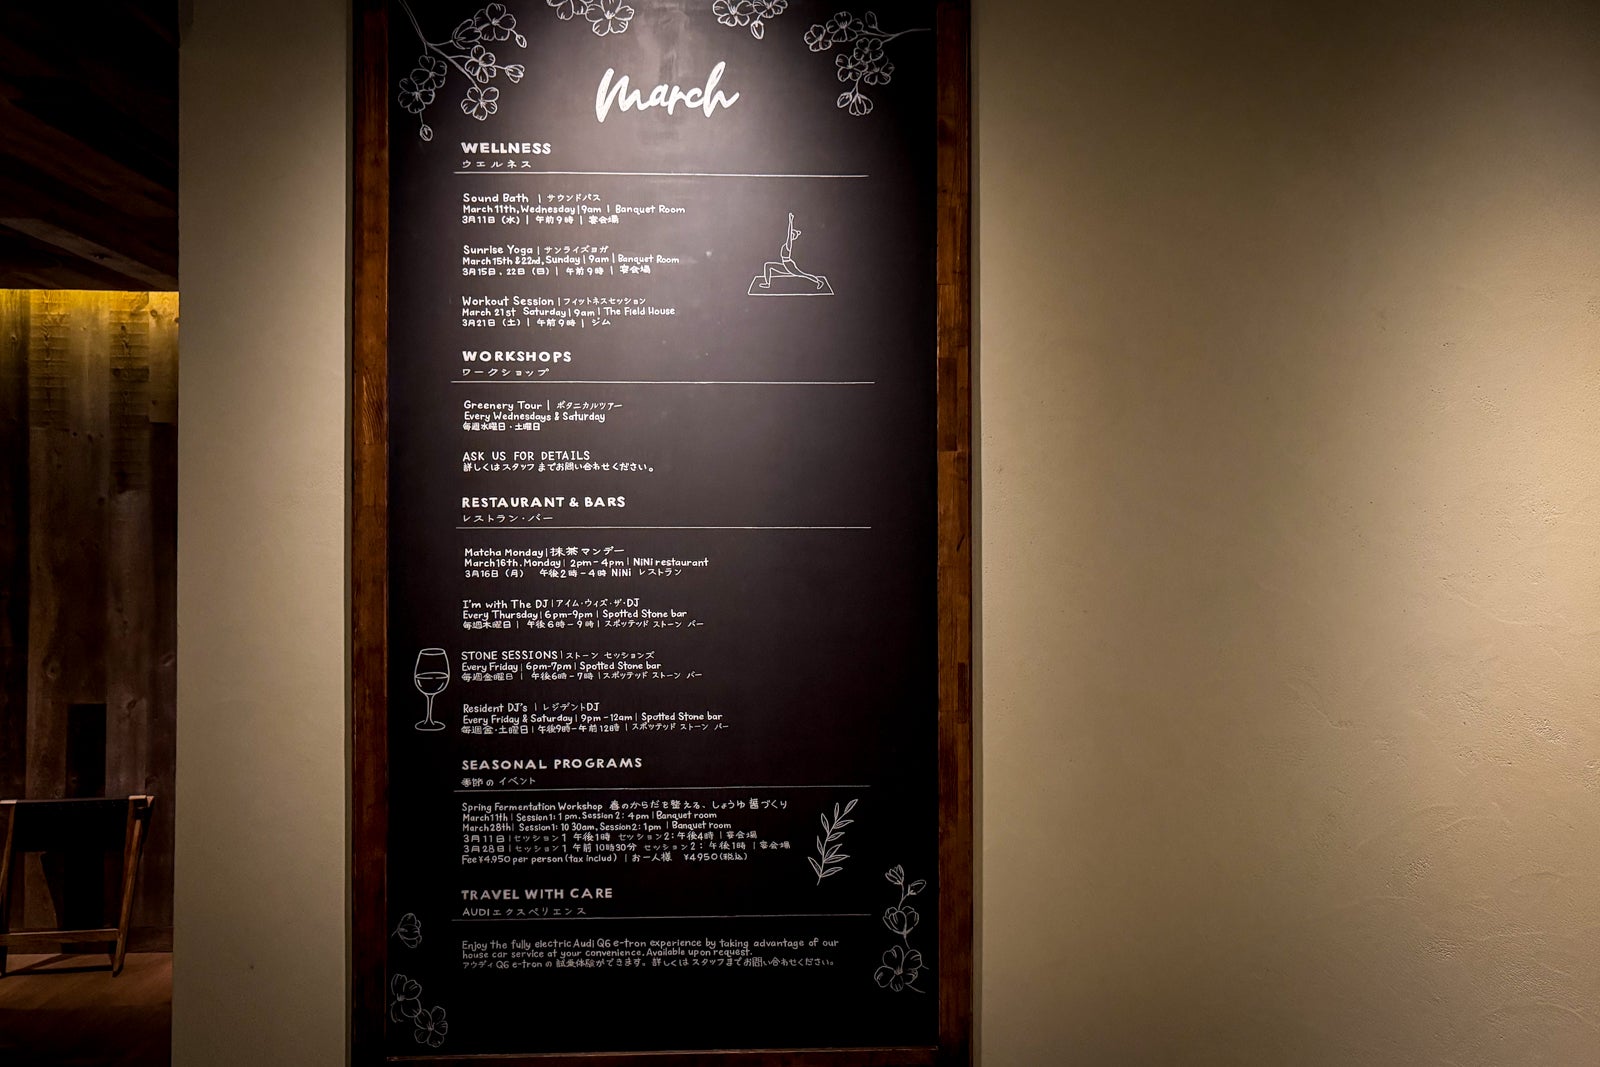 March
WELLNESS
ウエルネス
Sound Bath | サウンドバス
March 11th, Wednesday | 9am | Banquet Room
3月11日 (水) | 午前9時 | 宴会場
Sunrise Yoga | サンライズヨガ
March 15th & 22nd, Sunday | 9am | Banquet Room
3月15日、22日 (日) | 午前9時 | 宴会場
Workout Session | フィットネスセッション
March 21st Saturday | 9am | The Field House
3月21日 (土) | 午前9時 | ジム
WORKSHOPS
ワークショップ
Greenery Tour | ボタニカルツアー
Every Wednesdays & Saturday
毎週水曜日・土曜日
ASK US FOR DETAILS
詳しくはスタッフまでお問い合わせください。
RESTAURANT & BARS
レストラン・バー
Matcha Monday | 抹茶マンデー
March 16th. Monday | 2pm - 4pm | NiNi restaurant
3月16日 (月) 午後2時 - 4時 NiNi レストラン
I'm with The DJ | アイム・ウィズ・ザ・DJ
Every Thursday | 6pm-9pm | Spotted Stone bar
毎週木曜日 | 午後6時 - 9時 | スポッテッド ストーン バー
STONE SESSIONS | ストーン セッションズ
Every Friday | 6pm-7pm | Spotted Stone bar
毎週金曜日 | 午後6時 - 7時 | スポッテッド ストーン バー
Resident DJ's | レジデントDJ
Every Friday & Saturday | 9pm - 12am | Spotted Stone bar
毎週金・土曜日 | 午後9時 - 午前12時 | スポッテッド ストーン バー
SEASONAL PROGRAMS
季節のイベント
Spring Fermentation Workshop 春のからだを整える、しょうゆ麹づくり
March 11th | Session 1: 1pm, Session 2: 4pm | Banquet room
March 28th | Session 1: 10 30am, Session 2: 1pm | Banquet room
3月11日 | セッション1 午後1時 セッション2: 午後4時 | 宴会場
3月28日 | セッション1 午前10時30分 セッション2: 午後1時 | 宴会場
Fee ¥4,950 per person (tax includ) | お一人様 ¥4950 (税込)
TRAVEL WITH CARE
AUDIエクスペリエンス
Enjoy the fully electric Audi Q6 e-tron experience by taking advantage of our
house car service at your convenience. Available upon request.
アウディ Q6 e-tron の 試乗体験ができます。詳しくは スタッフまでお問い合わせください。